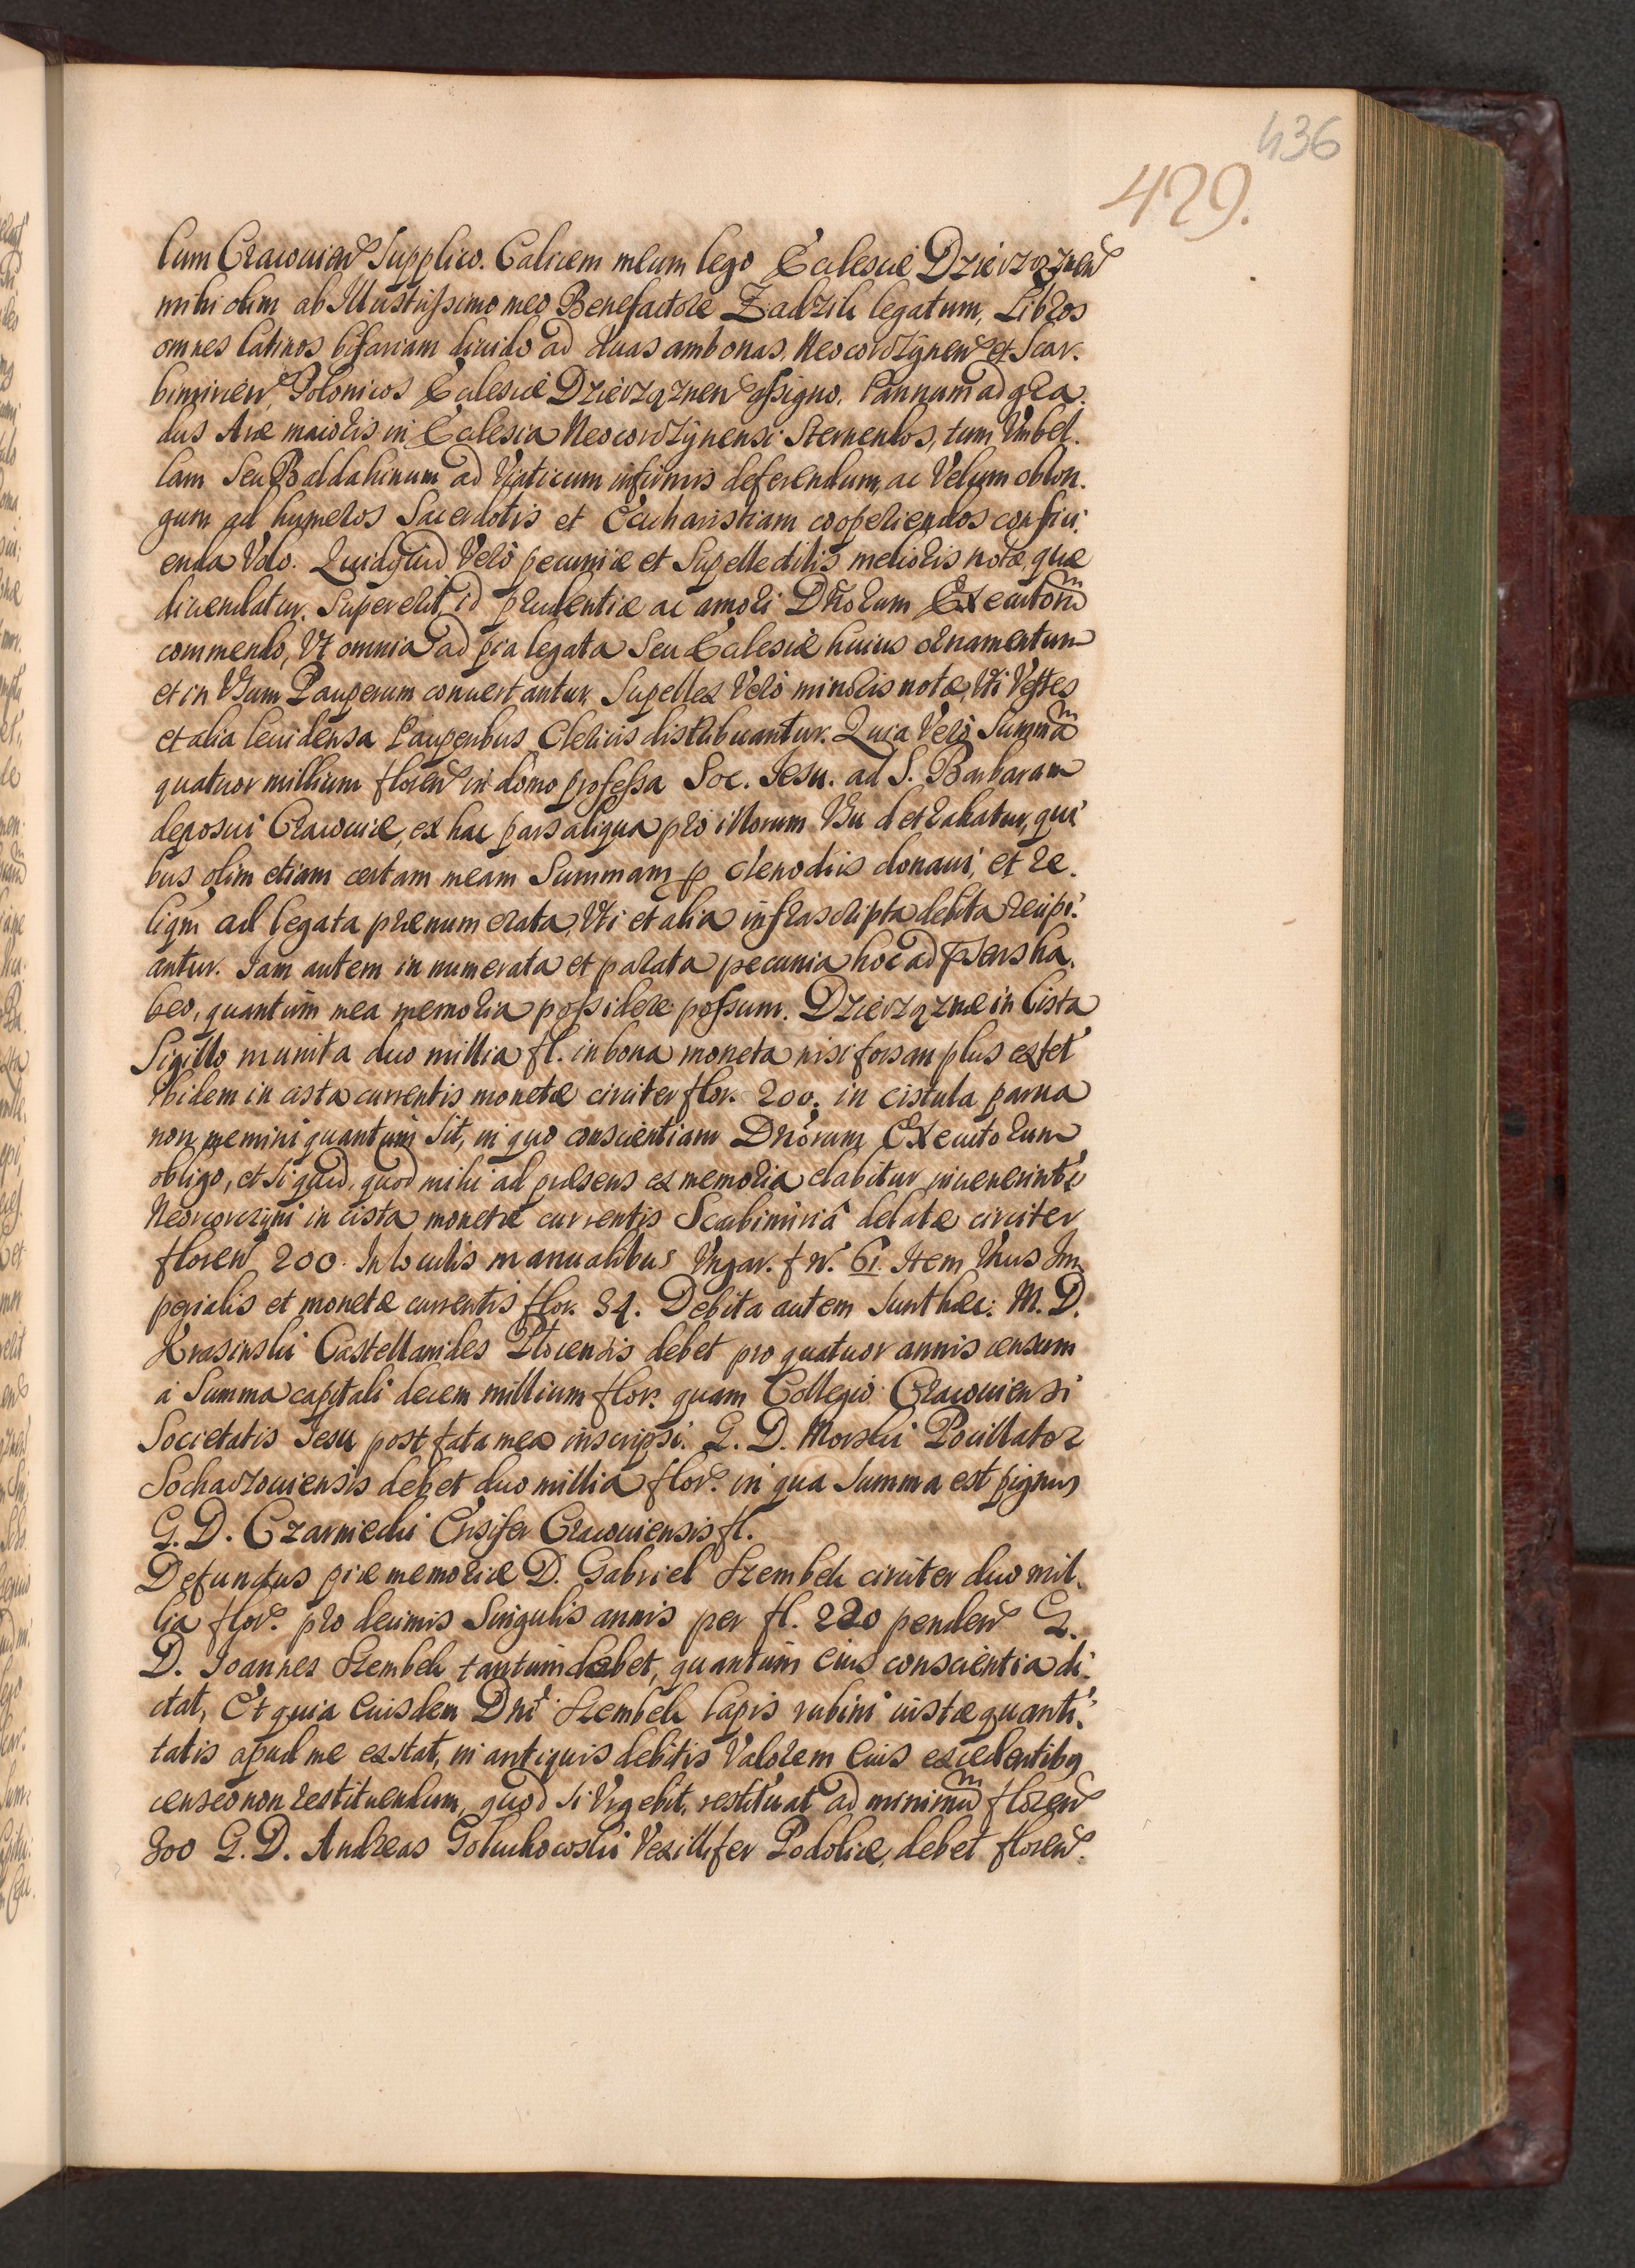 436
429.
lum Cracouien Supplico. Calicem meum lego Ecclesiæ Dzierząznen
mihi olim ab Illustrissimo meo Benefactore Zadzik legatum, Libros
omnes latinos bifariam diuido ad duas ambonas, Neocorczÿnen et Scar.
bimirien, Polonicos Ecclesiæ Dzierząznen assigno. Pannum ad gra.
dus Aræ maioris in Ecclesia Neocorczÿnensi sternendos, tum Vmbel.
lam seu Baldahinum ad Viaticum infirmis deferendum, ac Velum oblon.
gum ad humeros Sacerdotis et Eucharistiam cooperiendos confici.
enda Volo. Quidquid Verò pecuniæ et Supellectilis melioris notæ, quæ
diuendatur. Supererit, id prudentiæ ac amori Dñorum Executorũ
commendo, Vt omnia ad pia legata Seu Ecclesiæ huius ornamentum
et in Vsum Pauperum conuertantur, Supellex Verò minoris notæ, Vti Vestes
et alia leuidensa Pauperibus Clericis distribuantur. Quia Verò Summã
quatuor millium floren in domo professa Soc. Iesu. ad S. Barbaram
deposui Cracouiæ, ex hac pars aliqua pro illorum Vsu detrahatur, qui
bus olim etiam certam meam Summam p clenodiis donaui, et re.
liqm ad legata prænumerata, Vti et alia infrascripta debita recipi.
antur. Iam autem in numerata et parata pecunia hoc ad psens ha.
beo, quantum mea memoria possidere possum. Dzierząznæ in Cista
Sigillo munita duo millia fl. in bona moneta nisi forsan plus extet
Ibidem in cista currentis monetæ circiter flor. 200. in cistula parua
non memini quantum sit, in quo conscientiam Dñorum Executorum
obligo, et si quid, quod mihi ad præsens ex memoria elabitur, inuenerint
Neocorczyni in cista monetæ currentis Scarbimiriâ delatæ circiter
floren 200. In loculis manualibus Vngar. f N. 61. Item Vnus Im.
perialis et monetæ currentis flor. 34. Debita autem sunt hæc: M. D.
Krasinski Castellanides Plocensis debet pro quatuor annis censum
à Summa capitali decem millium flor. quam Collegio Cracouiensi
Societatis Iesu post fata mea inscripsi. G. D. Morski Pocillator
Sochaczouiensis debet duo millia flor. in qua summa est pignus
G. D. Czarniecki Ensifer Cracouiensis fl.
Defunctus piæ memoriæ D. Gabriel Szembek circiter duo mil.
lia flor. pro decimis singulis annis per fl. 220 penden G.
D. Joannes Szembek tantum debet, quantum eius conscientia di.
ctat, Et quia Eiusdem Dni Szembek lapis rubini iustæ quanti.
tatis apud me exstat, in antiquis debitis Valorem Eius excedentibg
censeo non restituendum, quod si Vrgebit, restituat ad minimũ floren
300 G. D. Andreas Goluchowski Vexillifer Podoliæ, debet floren